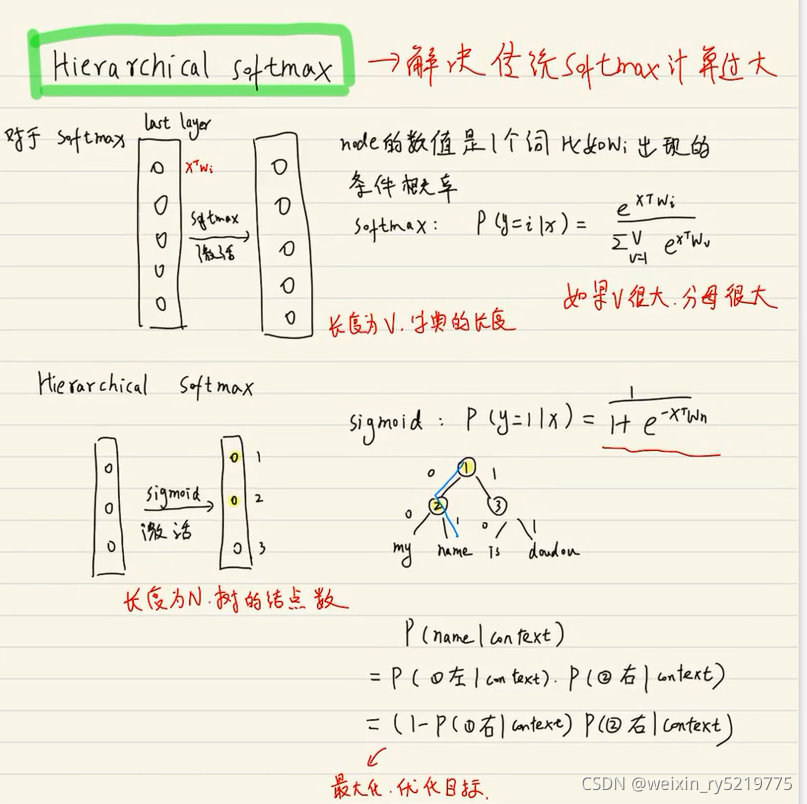 Hierarchical softmax → 解决传统softmax计算过大
对于 softmax
last layer
XᵀWi
softmax
激活
node的数值是1个词 比如Wi 出现的
条件概率
softmax: P(y=i|x) = e^{XᵀWi} / Σ_{v=1}^{V} e^{XᵀWv}
如果V很大.分母很大
长度为V.字典的长度
Hierarchical softmax
sigmoid
激活
1
2
3
长度为N.树的结点数
sigmoid: P(y=1|x) = 1 / (1+e^{-XᵀWn})
①
0 1
② ③
0 1 0 1
my name is doudou
P(name|context)
= P(①左|context). P(②右|context)
= (1-P(①右|context) P(②右|context)
最大化.优化目标.
CSDN @weixin_ry5219775